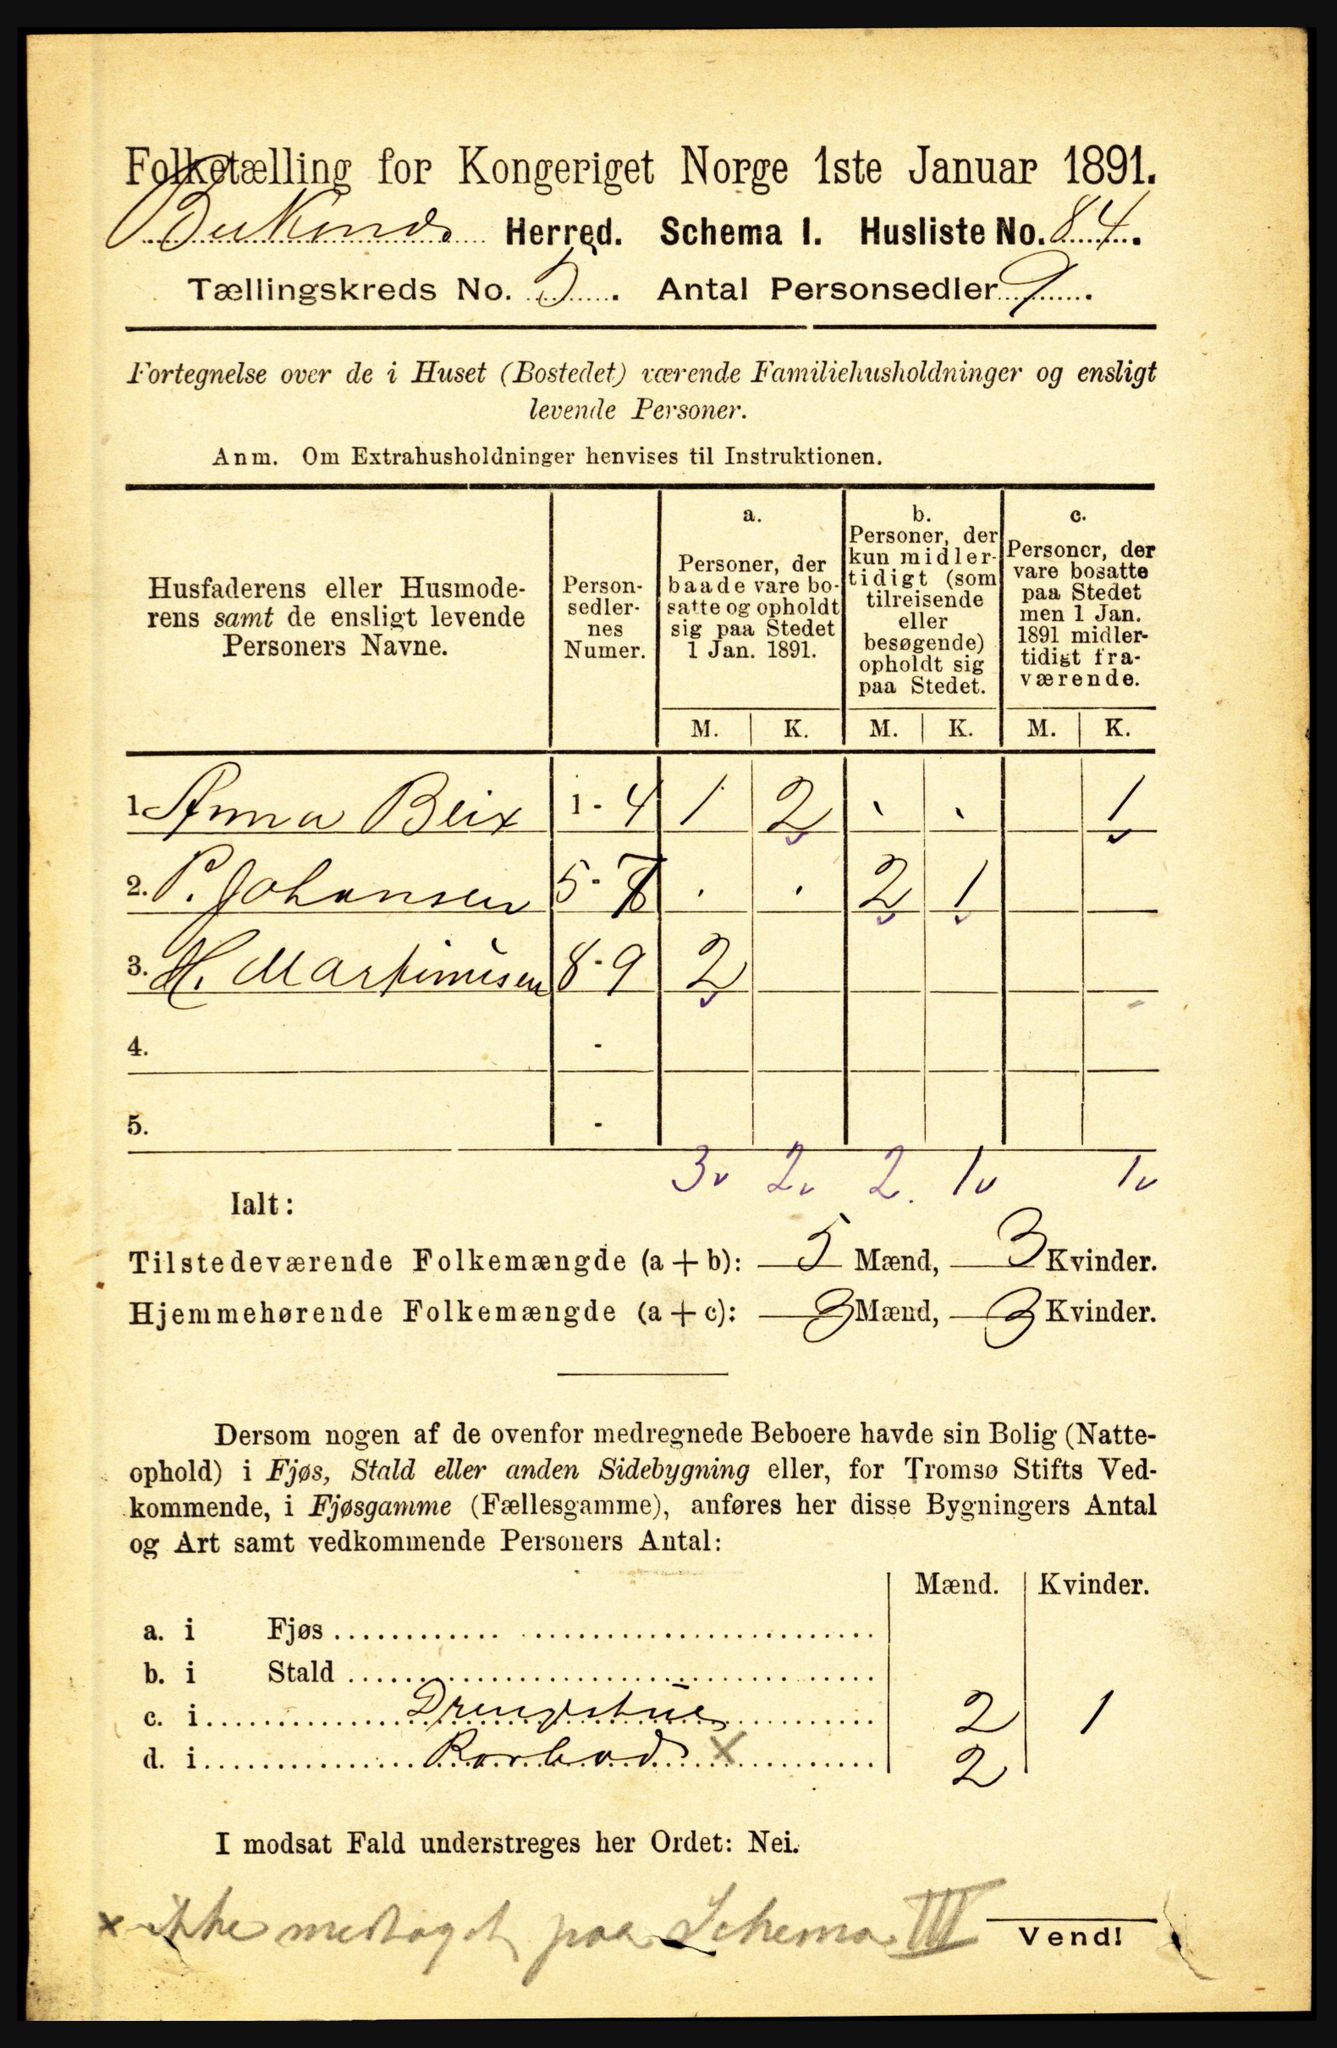 Folketælling for Kongeriget Norge 1ste Januar 1891.
Buksnes Herred. Schema I. Husliste No. 84.
Tællingskreds No. 5. Antal Personsedler 9.
Fortegnelse over de i Huset (Bostedet) værende Familiehusholdninger og ensligt
levende Personer.
Anm. Om Extrahusholdninger henvises til Instruktionen.
Husfaderens eller Husmode-
rens samt de ensligt levende
Personers Navne.
Person-
sedler-
nes
Numer.
a.
Personer, der
baade vare bo-
satte og opholdt
sig paa Stedet
1 Jan. 1891.
b.
Personer, der
kun midler-
tidigt (som
tilreisende
eller
besøgende)
opholdt sig
paa Stedet.
c.
Personer, der
vare bosatte
paa Stedet
men 1 Jan.
1891 midler-
tidigt fra-
værende.
M. K. M. K. M. K.
1. Anna Blix 1 - 4 1 2 . . 1
2. P. Johansen 5 - 7 . . 2 1
3. H. Martinusen 8 - 9 2
4. -
5. -
3 2 2. 1 1
Ialt:
Tilstedeværende Folkemængde (a + b): 5 Mænd, 3 Kvinder.
Hjemmehørende Folkemængde (a + c): 3 Mænd, 3 Kvinder.
Dersom nogen af de ovenfor medregnede Beboere havde sin Bolig (Natte-
ophold) i Fjøs, Stald eller anden Sidebygning eller, for Tromsø Stifts Ved-
kommende, i Fjøsgamme (Fællesgamme), anføres her disse Bygningers Antal
og Art samt vedkommende Personers Antal:
Mænd. Kvinder.
a. i Fjøs
b. i Stald
c. i Drengstue 2 1
d. i Rorbod x 2
I modsat Fald understreges her Ordet: Nei.
x ikke medtaget paa Schema III
Vend!